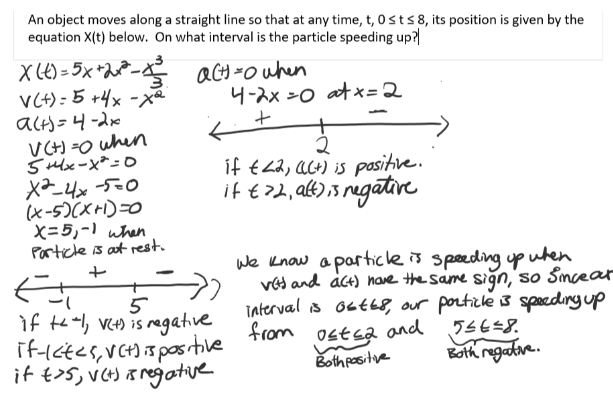 An object moves along a straight line so that at any time, t, 0 ≤ t ≤ 8, its position is given by the
equation X(t) below. On what interval is the particle speeding up?
X(t)=5x+2x²-x³/3
v(t)=5+4x-x²
a(t)=4-2x
v(t)=0 when
5+4x-x²=0
x²-4x-5=0
(x-5)(x+1)=0
x=5,-1 when
Particle is at rest.
- + -
-1 5
if t<-1, v(t) is negative
if -1<t<5, v(t) is positive
if t>5, v(t) is negative
a(t)=0 when
4-2x=0 at x=2
+ -
2
if t<2, a(t) is positive.
if t>2, a(t) is negative
We know a particle is speeding up when
v(t) and a(t) have the same sign, so since our
interval is 0≤t≤8, our particle is speeding up
from 0≤t≤2 and 5≤t≤8.
Both positive Both negative.